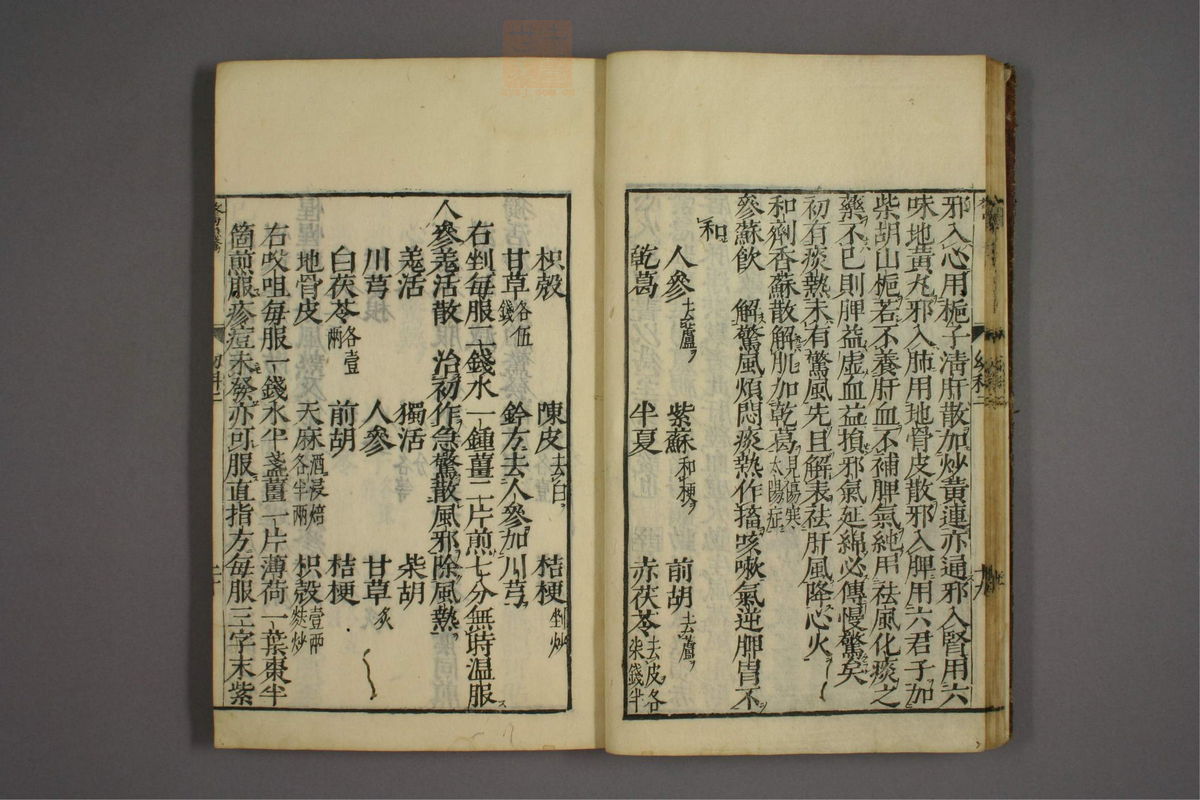 邪入心用梔子清肝散加炒黃連亦通邪入腎用六
味地黃丸邪入肺用地骨皮散邪入脾用六君子加
柴胡山梔若不養肝血不補脾氣純用祛風化痰之
藥不已則脾益虛血益損邪氣延綿必傳慢驚矣
初有痰熱未有驚風先且解表祛肝風降心火
和劑香蘇散解肌加乾葛見傷寒太陽症
參蘇飲　解驚風煩悶痰熱作搐咳嗽氣逆脾胃不
和
人參去蘆　紫蘇和梗　前胡去蘆
乾葛　半夏　赤茯苓去皮各柒錢半
枳殼　陳皮去白　桔梗剉炒
甘草各伍錢　鈐方去人參加川芎
右剉每服二錢水一鍾薑二片煎七分無時温服
人參羗活散　治初作急驚散風邪除風熱
羗活　獨活　柴胡
川芎　人參　甘草炙
白茯苓各壹兩　前胡　桔梗
地骨皮　天麻酒浸焙各半兩　枳殼壹兩麩炒
右㕮咀每服一錢水半盞薑一片薄荷一葉棗半
箇煎服疹痘未發亦可服直指方每服三字末紫